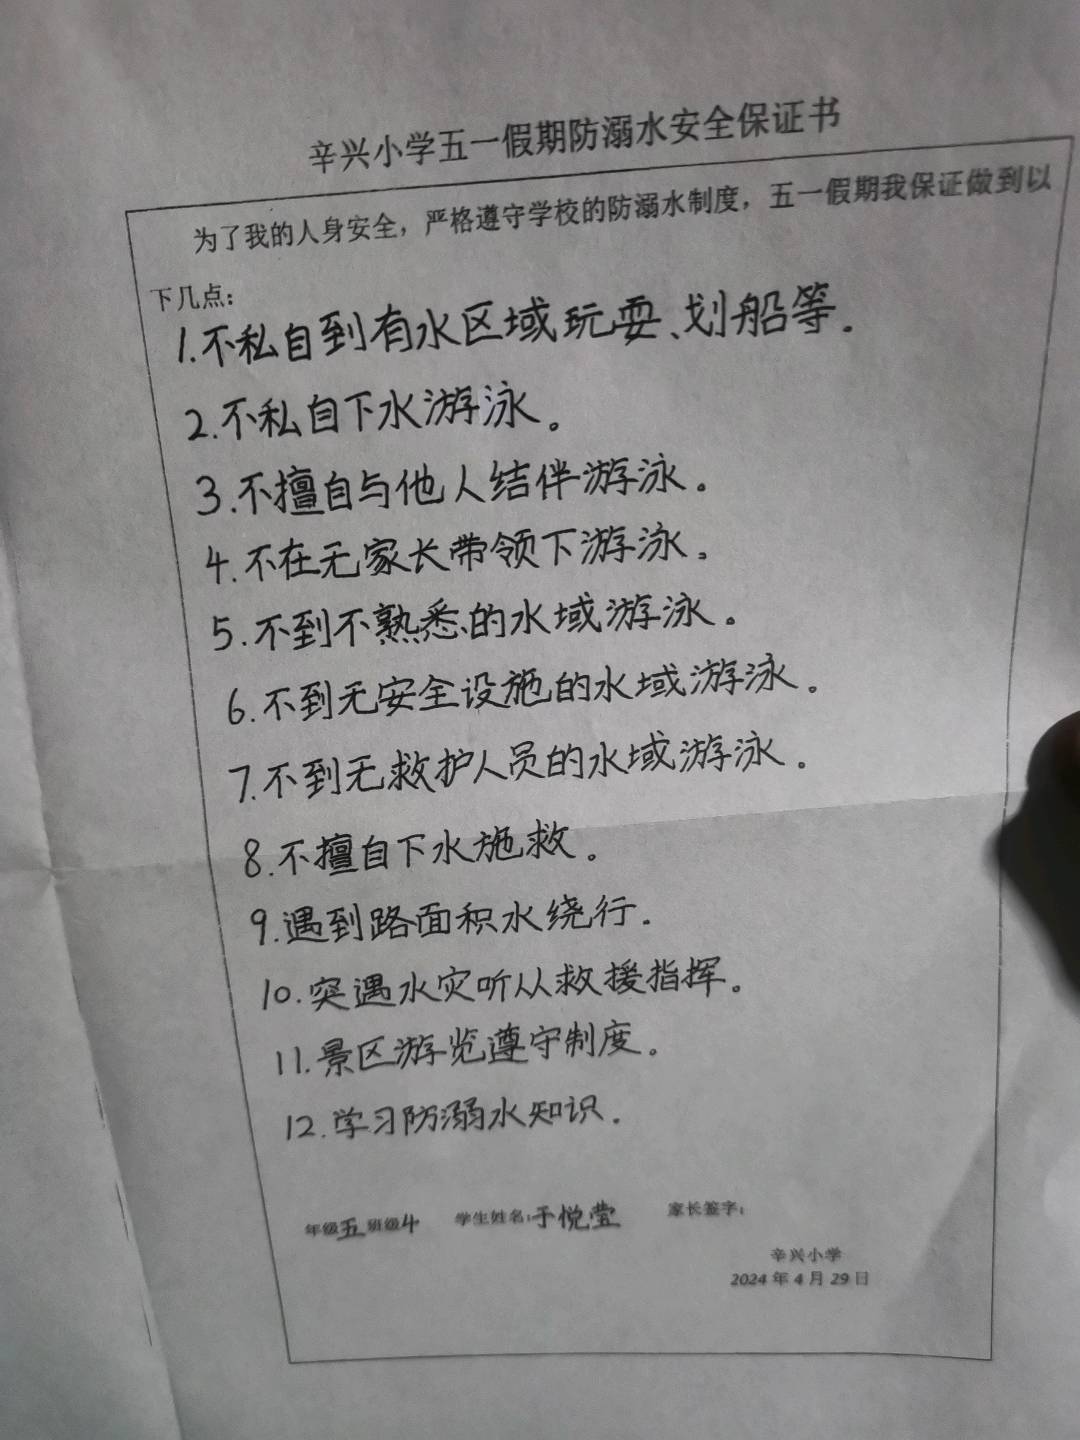 辛兴小学五一假期防溺水安全保证书
为了我的人身安全，严格遵守学校的防溺水制度，五一假期我保证做到以
下几点：
1.不私自到有水区域玩耍、划船等。
2.不私自下水游泳。
3.不擅自与他人结伴游泳。
4.不在无家长带领下游泳。
5.不到不熟悉的水域游泳。
6.不到无安全设施的水域游泳。
7.不到无救护人员的水域游泳。
8.不擅自下水施救。
9.遇到路面积水绕行.
10.突遇水灾听从救援指挥。
11.景区游览遵守制度。
12.学习防溺水知识.
年级五班级4 学生姓名：于悦莹 家长签字：
辛兴小学
2024年4月29日